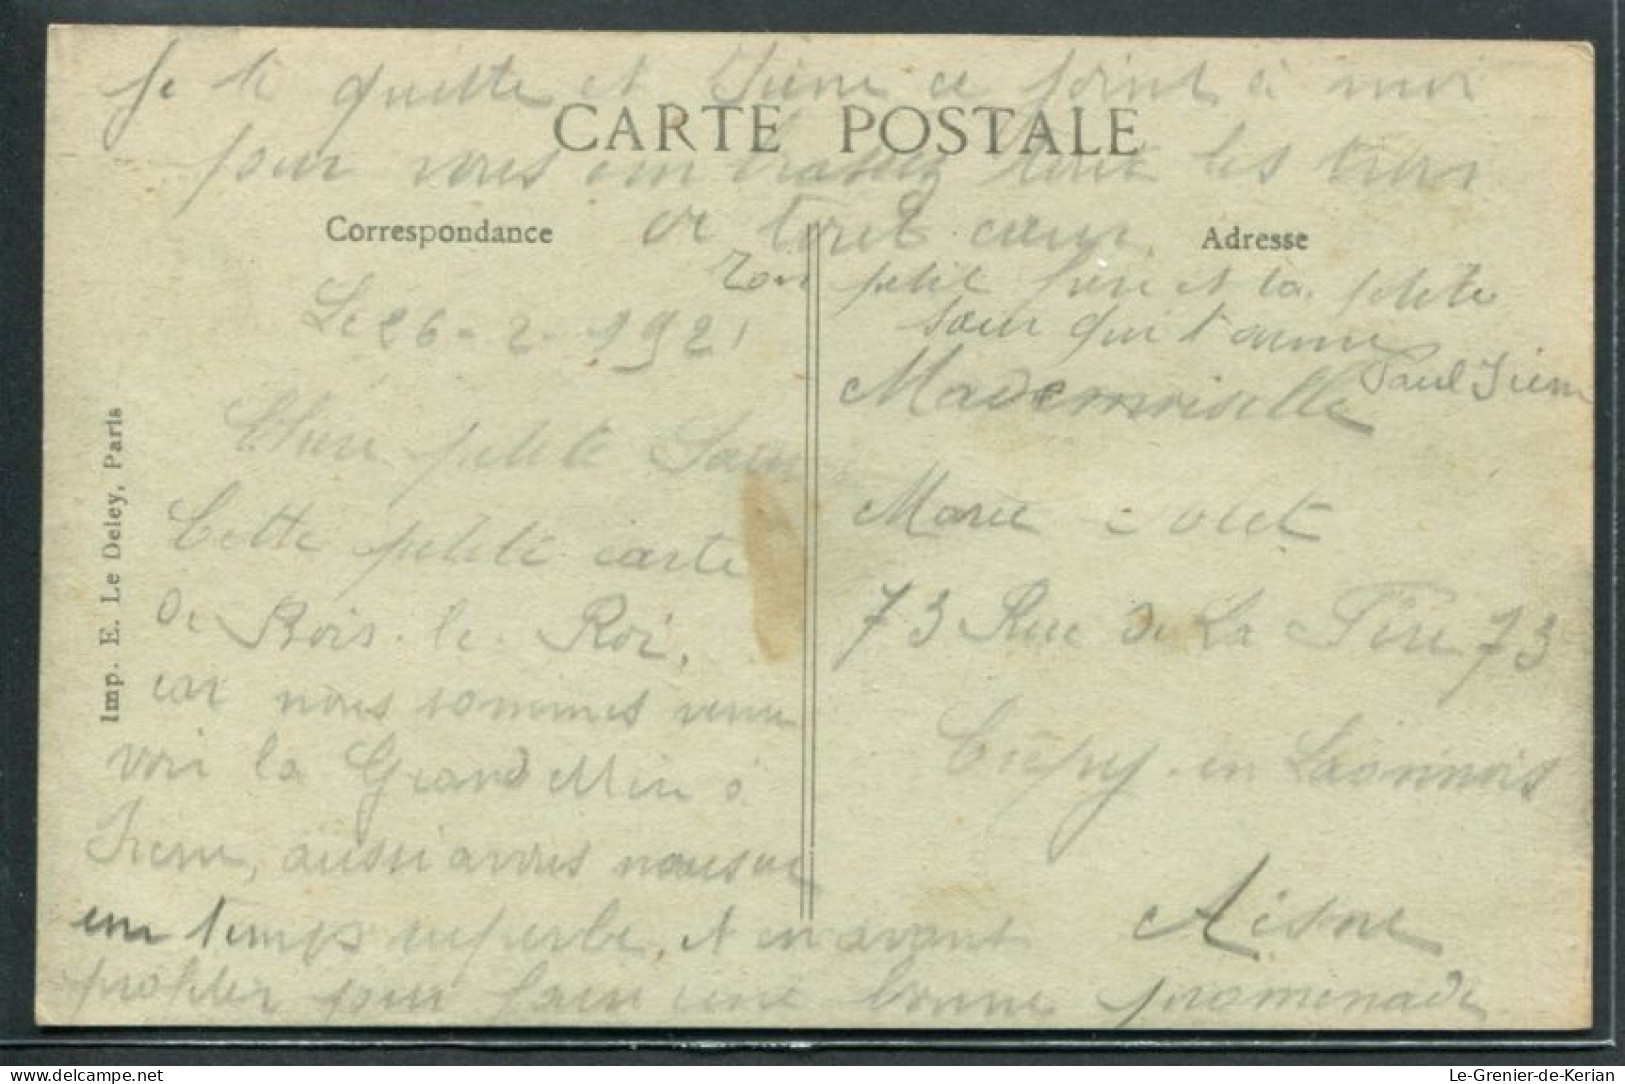 Je te quitte et Irène ce joint à moi
pour vous embrasser tout les trois
de tout cœur.
CARTE POSTALE
Correspondance
Adresse
Ton petit frère et ta petite
sœur qui t'aime
Paul Irène
Le 26-2-1921
Chère petite Sœur
Cette petite carte
de Bois-le-Roi,
car nous sommes venu
voir la Grand Mère à
Irène, aussi avons nous eu
un temps superbe, et en avons
profiter pour faire une bonne promenade
Mademoiselle
Marie
73 Rue de La Fère 73
Crépy-en Laonnois
Aisne
Imp. E. Le Deley, Paris
Le-Grenier-de-Kerian